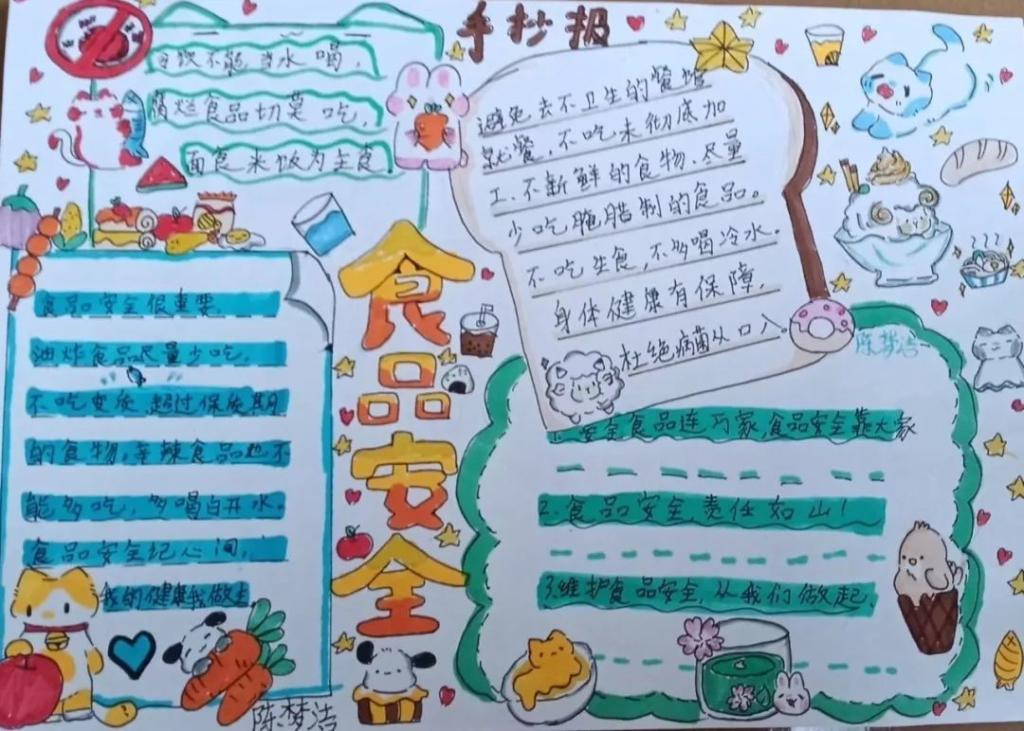 手抄报
饮不能当水喝，
腐烂食品切莫吃，
面食米饭为主食
避免去不卫生的餐馆
就餐，不吃未彻底加
工、不新鲜的食物、尽量
少吃腌腊制的食品。
不吃生食，不多喝冷水。
身体健康有保障，
杜绝病菌从口入。
食品安全
食品安全很重要
油炸食品尽量少吃，
不吃变质，超过保质期
的食物，辛辣食品也不
能多吃，多喝白开水。
食品安全记心间，
我的健康我做主
陈梦洁
陈梦洁
1.安全食品连万家，食品安全靠大家
2.食品安全，责任如山！
3.维护食品安全，从我们做起、